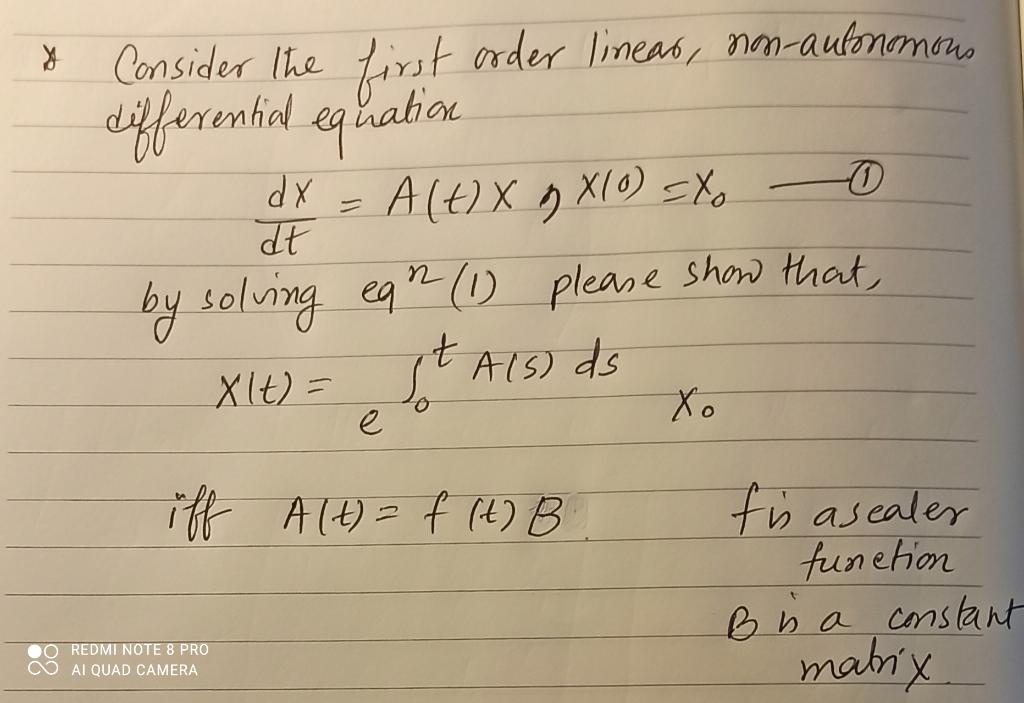 * Consider the first order linear, non-autonomous
differential equation
dx/dt = A(t)X, X(0) = X₀ —— ①
by solving eqⁿ (1) please show that,
X(t) = e^{∫₀ᵗ A(s) ds} X₀
iff A(t) = f(t) B. f is a scaler
function
B is a constant
matrix.
REDMI NOTE 8 PRO
AI QUAD CAMERA